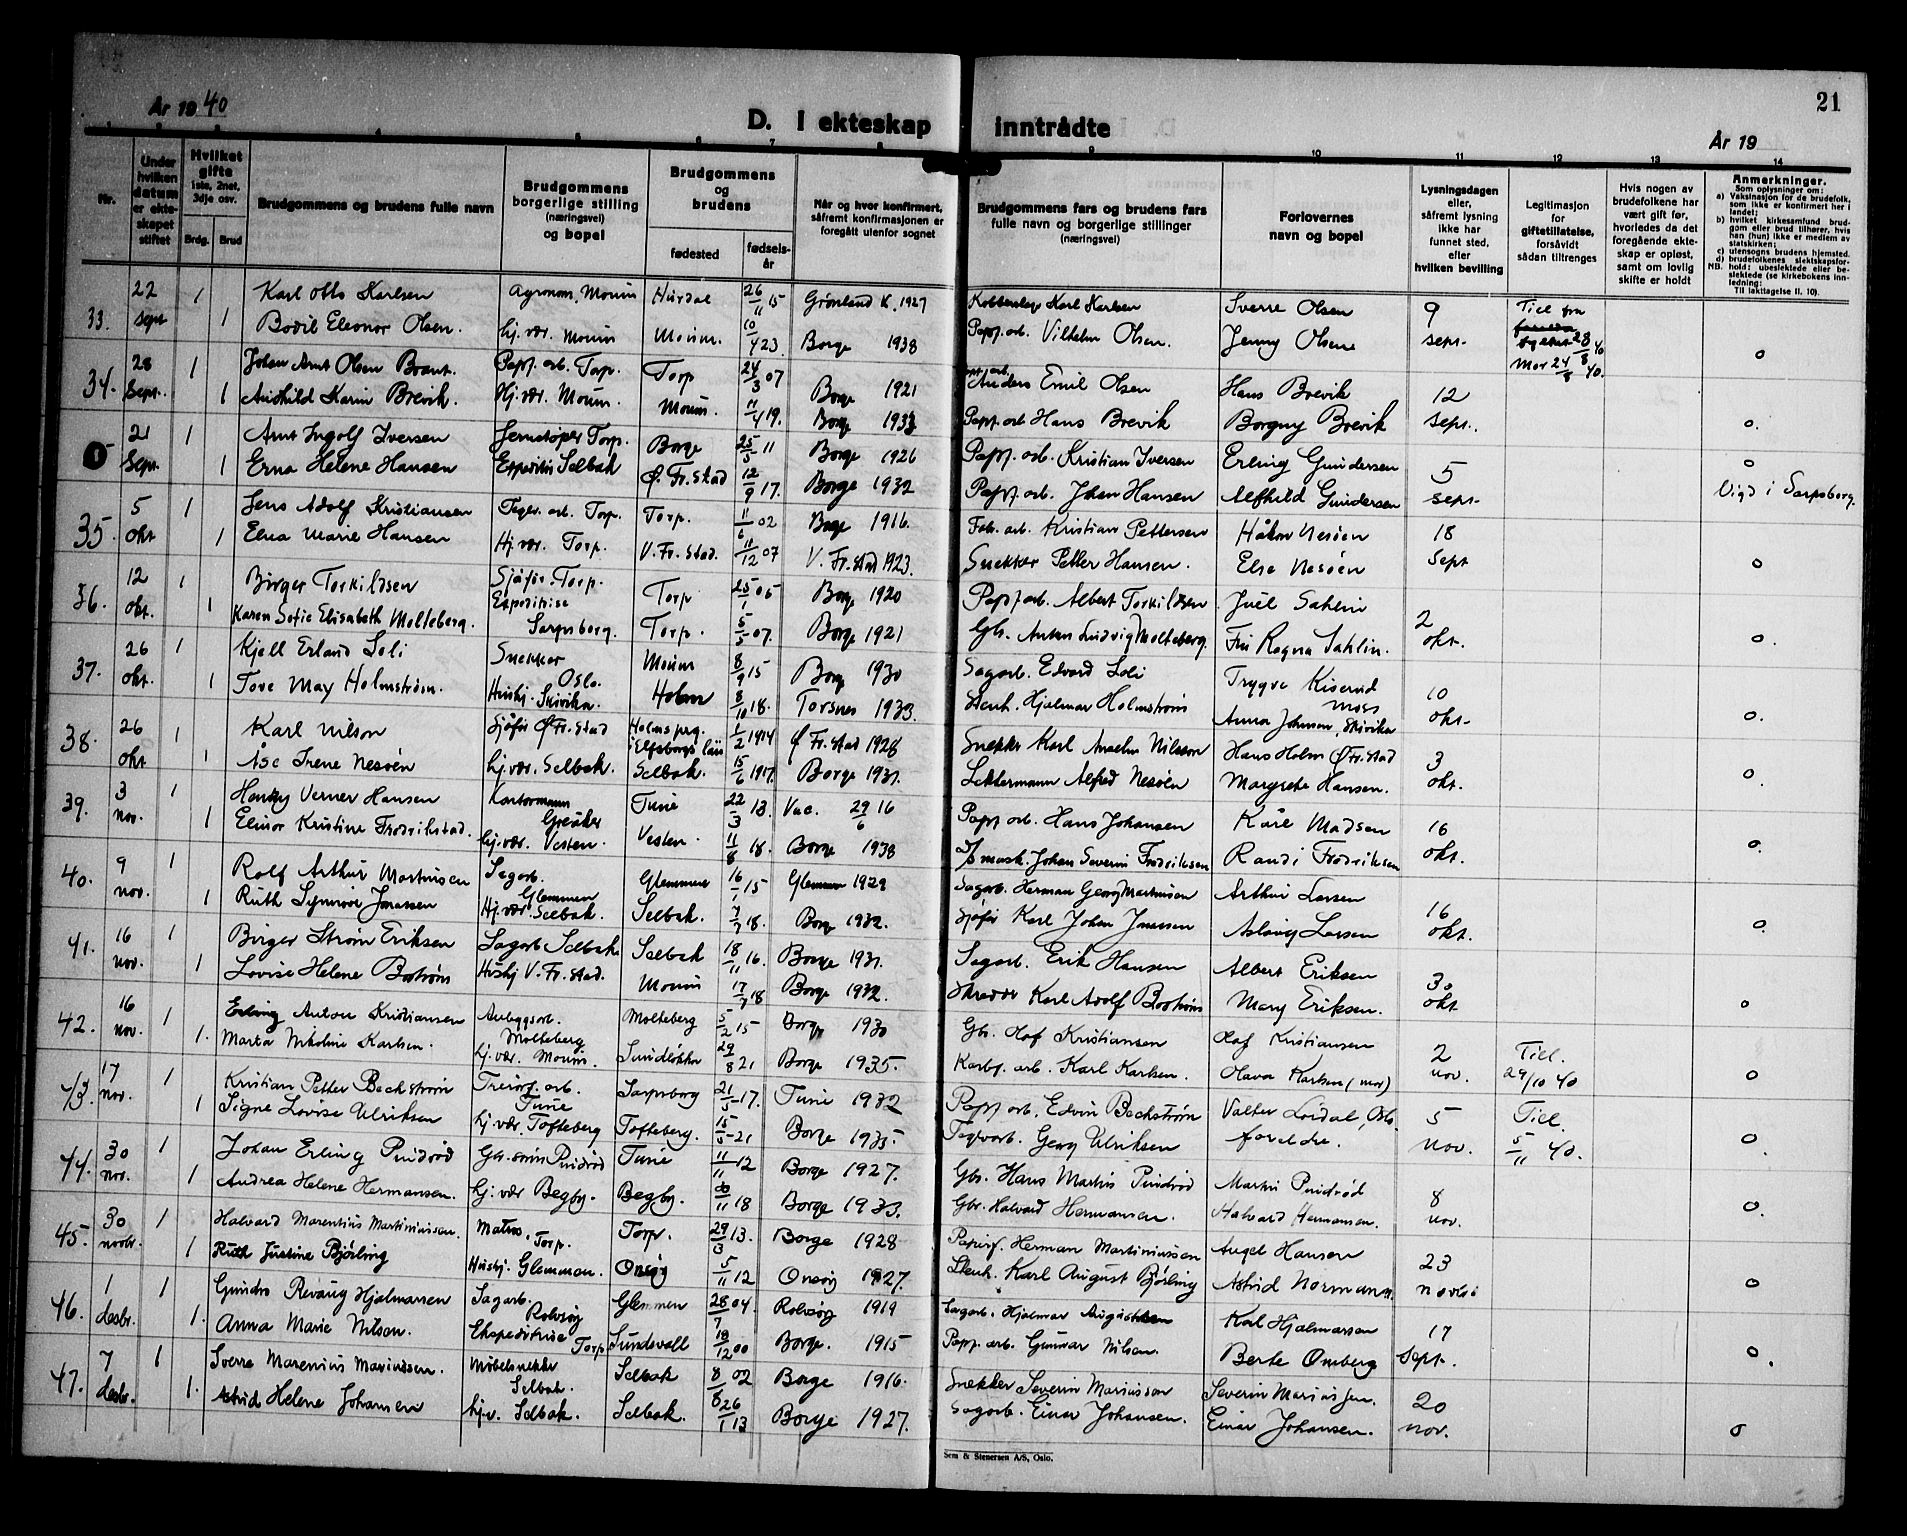 År 1940
D. I ekteskap inntrådte
År 19
21
1 2 3 4 5 6 7 8 9 10 11 12 13 14
Nr.
Under hvilken datum er ekteskapet stiftet
Hvilket gifte 1ste, 2net, 3dje osv.
Brdg. Brud
Brudgommens og brudens fulle navn
Brudgommens borgerlige stilling (næringsvei) og bopel
Brudgommens og brudens
fødested
fødselsår
Når og hvor konfirmert, såfremt konfirmasjonen er foregått utenfor sognet
Brudgommens fars og brudens fars fulle navn og borgerlige stillinger (næringsvei)
Forlovernes navn og bopel
Lysningsdagen eller, såfremt lysning ikke har funnet sted, efter hvilken bevilling
Legitimasjon for giftetillatelse, forsåvidt sådan tiltrenges
Hvis nogen av brudefolkene har vært gift før, hvorledes da det foregående ekteskap er opløst, samt om lovlig skifte er holdt
Anmerkninger.
Som oplysninger om:
a) Vaksinasjon for de brudefolk, som ikke er konfirmert her i landet;
b) hvilket kirkesamfund brudgom eller brud tilhører, hvis han (hun) ikke er medlem av statskirken;
c) utensogns brudens hjemsted.
d) brudefolkenes slektskapsforhold: ubeslektede eller beslektede (se kirkebokens innledning: Til iakttagelse II. 10).
NB.
33. 22 sept 1 Karl Otto Karlsen Agronom, Moum Hurdal 26/11 15 Grønland K. 1927 Karl Karlsen Sverre Olsen 9 sept. Till fra
1 Bodil Eleonor Olsen. Hj. vær. Moum Moum. 10/4 23 Borge 1938 Papp. arb. Vilhelm Olsen. Jenny Olsen 28/8 40 Mor 24/8 40. 0
34. 28 Sept. 1 Johan Arnt Olsen Brant. Papp. arb. Torp. Torp 24/3 07 Borge 1921 Anders Emil Olsen Hans Brevik 12 sept.
1 Audhild Karin Brevik. Hj. vær. Moum. Moum. 11/4 19. Borge 1933 Papp. arb Hans Brevik Borgny Brevik 0.
21 Sept. 1 Arnt Ingolf Iversen Jernstøper Torp. Borge 25/5 11 Borge 1926 Papp. arb. Kristian Iversen Erling Gundersen 5 sept. 0
1 Erna Helene Hansen Selbak Ø. Fr.stad 12/9 17. Borge 1932 Papp. arb. Johan Hansen Alfhild Gundersen Vigd i Sarpsborg.
35. 5 okt 1 Jens Adolf Kristiansen arb. Torp. Torp. 11/6 02 Borge 1916. Fab. arb. Kristian Pettersen Håkon Nesøen 18 Sept
1 Elna Marie Hansen Hj. vær. Torp. V. Fr. stad. 11/12 07 V. Fr. stad 1923. Snekker Petter Hansen. Else Nesøen 0
36. 12 okt. 1 Birger Torkildsen Sjåfør. Torp. Torp 25/1 05 Borge 1920 Papp arb. Albert Torkildsen Juel Sahlin 2 okt.
1 Karen Sofie Elisabeth Molteberg. Sarpsborg. Torp. 5/5 07. Borge 1921 Gbr. Anton Ludvig Molteberg. Fru Ragna Sahlin. 0.
37. 26 okt. 1 Kjell Erland Loli Snekker Oslo. Moum 8/9 15 Borge 1930 Sagarb. Edvard Loli Trygve Kiserud Moss 10 okt.
1 Tove May Holmstrøm. Hushj. Skivika. Holm 8/10 18. Torsnes 1933. Stenh. Hjalmar Holmstrøm Anna Johnsen, Skivika 0.
38. 26 okt 1 Karl Nilson Sjåfør Ø Fr. stad Elfsborgs län 1/2 1914 Ø Fr. stad 1928 Snekker Karl Anselm Nilsson Hans Holm Ø Fr. stad 3 okt.
1 Åse Irene Nesøen hj. vær. Selbak. Selbak. 15/6 1917. Borge 1931. Alfred Nesøen Margrete Hansen. 0.
39. 3 nov. 1 Verner Hansen Kontormann Greåker Tune 22/3 13 Vac. 29/6 16 Papp arb. Hans Johansen Kåre Madsen 16 okt.
1 Elinor Kristine Fredrikstad. hj. vær. Vesten. Vesten. 11/8 18. Borge 1938 Johan Severin Fredriksen Randi Fredriksen 0.
40. 9 nov. 1 Rolf Arthur Martinsen Sagarb. Glemmen Glemmen 16/1 15 Glemmen 1929 Sagarb. Herman Georg Martinsen Arthur Larsen 16 okt.
1 Ruth Synnøve Jonassen Hj. vær. Selbak. Selbak. 7/7 18. Borge 1932. Sjåfør Karl Johan Jonassen Aslaug Larsen 0.
41. 16 nov. 1 Birger Strøm Eriksen Sagarb Selbak Selbak 18/11 16. Borge 1931. Sagarb. Erik Hansen Albert Eriksen 30 okt
1 Lovise Helene Bostrøm Hushj V. Fr. stad. Moum 17/7 18 Borge 1932. Karl Adolf Bostrøm Mary Eriksen. 0
42. 16 nov. 1 Erling Anton Kristiansen Anleggsarb. Molteberg Molteberg 5/2 15 Borge 1930 Gbr. Olaf Kristiansen Olaf Kristiansen 2 nov. Till. 29/10 40
1. Marta Nikoline Karlsen. hj. vær. Moum. Sundløkka 29/8 21 Borge 1935. arb. Karl Karlsen. Olava Karlsen (mor) 0
43. 17 nov. 1 Kristian Petter Bechstrøm arb. Tune Sarpsborg 21/5 17. Tune 1932 Papp arb. Edvin Bechstrøm Valter Loidal, Oslo. 5 nov. Till. 5/11 40.
1 Signe Lovise Ulriksen hj. vær. Tofteberg Tofteberg. 15/5 21 Borge 1935. Georg Ulriksen foreldre. 0.
44. 30 nov. 1 Johan Erling Pindrød Gbr. sønn Pindrød Tune 11/11 12 Borge 1927. Gbr. Hans Martin Pindrød Martin Pindrød 8 nov.
1 Andrea Helene Hermansen. hj. vær Begby. Begby. 30/11 18 Borge 1933. Gbr. Halvard Hermansen. Halvard Hermansen. 0.
45. 30 novbr. 1 Halvard Marentius Martiniussen. Matros, Torp. Torp. 29/3 13. Borge 1928 Herman Martiniussen Angel Hansen 23 novbr
1 Ruth Justine Bjørling Hushj. Glemmen. Onsøy 5/11 12 Onsøy 1927. Stenh. Karl August Bjørling Astrid Normann. 0
46. 1 desbr. 1 Gundro Revaug Hjalmarsen Sagarb. Rolvsøy Glemmen 28/7 04. Rolvsøy 1919 Sagarb. Hjalmar Augustsen Karl Hjalmarsen 17 Sept.
1. Anna Marie Nilsen. Ekspeditrise Torp Sundsvall 18/12 00 Borge. 1915 Papp. arb. Gunnar Nilsen. Berte Omberg 0.
47. 7 desbr. 1 Sverre Marenius Mariussen. Møbelsnekker Selbak. Selbak 8/8 02 Borge 1916. Snekker Severin Mariussen Severin Mariussen. 20 nov.
1. Astrid Helene Johansen hj. v. Selbak. Selbak. 26/1 13 Borge 1927. Sagarb. Einar Johansen. Einar Johansen. 0
Sem & Stenersen A/S, Oslo.